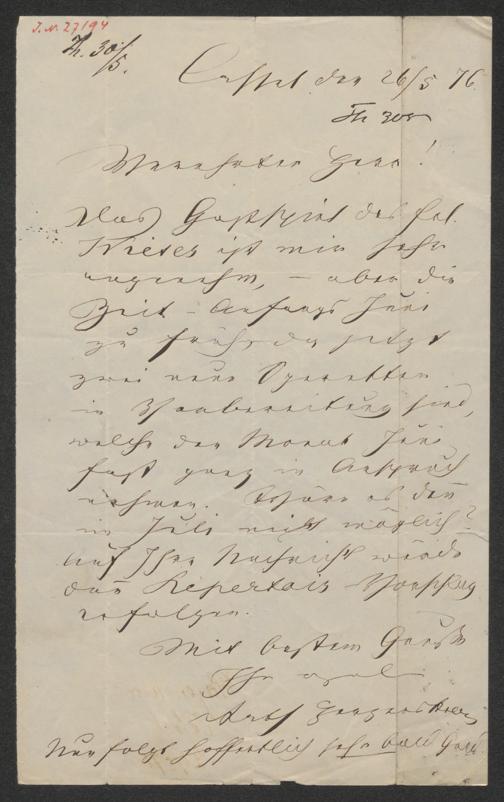 I. N. 27194
Th. 30/5.
Cassel den 26/5 76.
Verehrter Herr!
Das Gastspiel des Frl.
ist mir sehr
angenehm, – aber die
Zeit – Anfangs Juni
zu früh, da jetzt
zwei neue Operetten
in Vorbereitung sind,
welche den Monat Juni
fast ganz in Anspruch
nehmen. Wäre es denn
im Juli nicht möglich?
Auf Ihre Nachricht würde
das Repertoir-Vorschlag
erfolgen.
Mit bestem Gruße
Ihr
Nun folgt hoffentlich sehr bald